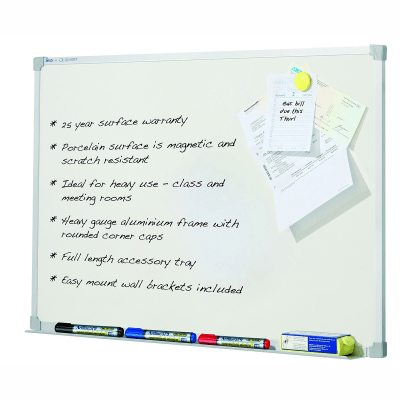 * 25 year surface warranty
* Porcelain surface is magnetic and
scratch resistant
* Ideal for heavy use - class and
meeting rooms
* Heavy gauge aluminium frame with
rounded corner caps
* Full length accessory tray
* Easy mount wall brackets included
Gas bill
due this
Thur!